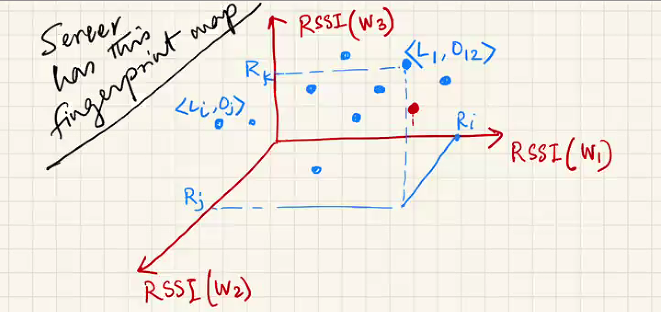 Server
has this
fingerprint map
RSSI(W3)
<L1, O12>
Rk
<Li, Oj>
Ri
RSSI(W1)
Rj
RSSI(W2)